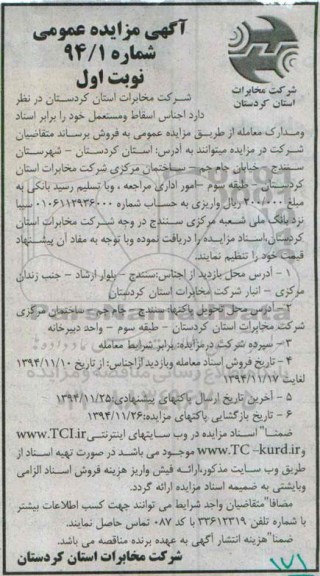 آگهی مزایده عمومی
شماره ۹۴/۱
نوبت اول
شرکت مخابرات
استان کردستان
شرکت مخابرات استان کردستان در نظر
دارد اجناس اسقاط ومستعمل خود را برابر اسناد
ومدارک معامله از طریق مزایده عمومی به فروش برساند متقاضیان
شرکت در مزایده میتوانند به آدرس: استان کردستان - شهرستان
سنندج - خیابان جام جم - ساختمان مرکزی شرکت مخابرات استان
کردستان - طبقه سوم -امور اداری مراجعه ، وبا تسلیم رسید بانکی به
مبلغ ۲۰۰/۰۰۰ ریال واریزی به حساب شماره ۰۱۰۶۱۱۲۹۳۶۰۰۰ سیبا
نزد بانک ملی شعبه مرکزی سنندج در وجه شرکت مخابرات استان
کردستان،اسناد مزایده را دریافت نموده وبا توجه به مفاد آن پیشنهاد
قیمت خود را تنظیم نمایند.
۱ - آدرس محل بازدید از اجناس:سنندج - بلوار ارشاد - جنب زندان
مرکزی - انبار شرکت مخابرات استان کردستان
۲ -آدرس محل تحویل پاکتها: سنندج - جام جم - ساختمان مرکزی
شرکت مخابرات استان کردستان - طبقه سوم - واحد دبیرخانه
۳- سپرده شرکت درمزایده: برابر شرایط معامله
۴ - تاریخ فروش اسناد معامله وبازدید ازاجناس: از تاریخ ۱۳۹۴/۱۱/۱۰
لغایت ۱۳۹۴/۱۱/۱۷
۵ - آخرین تاریخ ارسال پاکتهای پیشنهادی:۱۳۹۴/۱۱/۲۵
۶ - تاریخ بازگشایی پاکتهای مزایده:۱۳۹۴/۱۱/۲۶
ضمنا" اسناد مزایده در وب سایتهای اینترنتی www.TCI.ir
و www.TC -kurd.ir موجود می باشد در صورت تهیه اسناد از
طریق وب سایت مذکور،ارائه فیش واریز هزینه فروش اسناد الزامی
وبایشتی به ضمیمه اسناد مزایده ارائه گردد.
مضافا"متقاضیان واجد شرایط می توانند جهت کسب اطلاعات بیشتر
با شماره تلفن ۳۳۶۱۲۳۱۹ با کد ۰۸۷ تماس حاصل نمایند.
ضمنا"هزینه انتشار آگهی به عهده برنده مناقصه می باشد.
شرکت مخابرات استان کردستان
۱۷۱